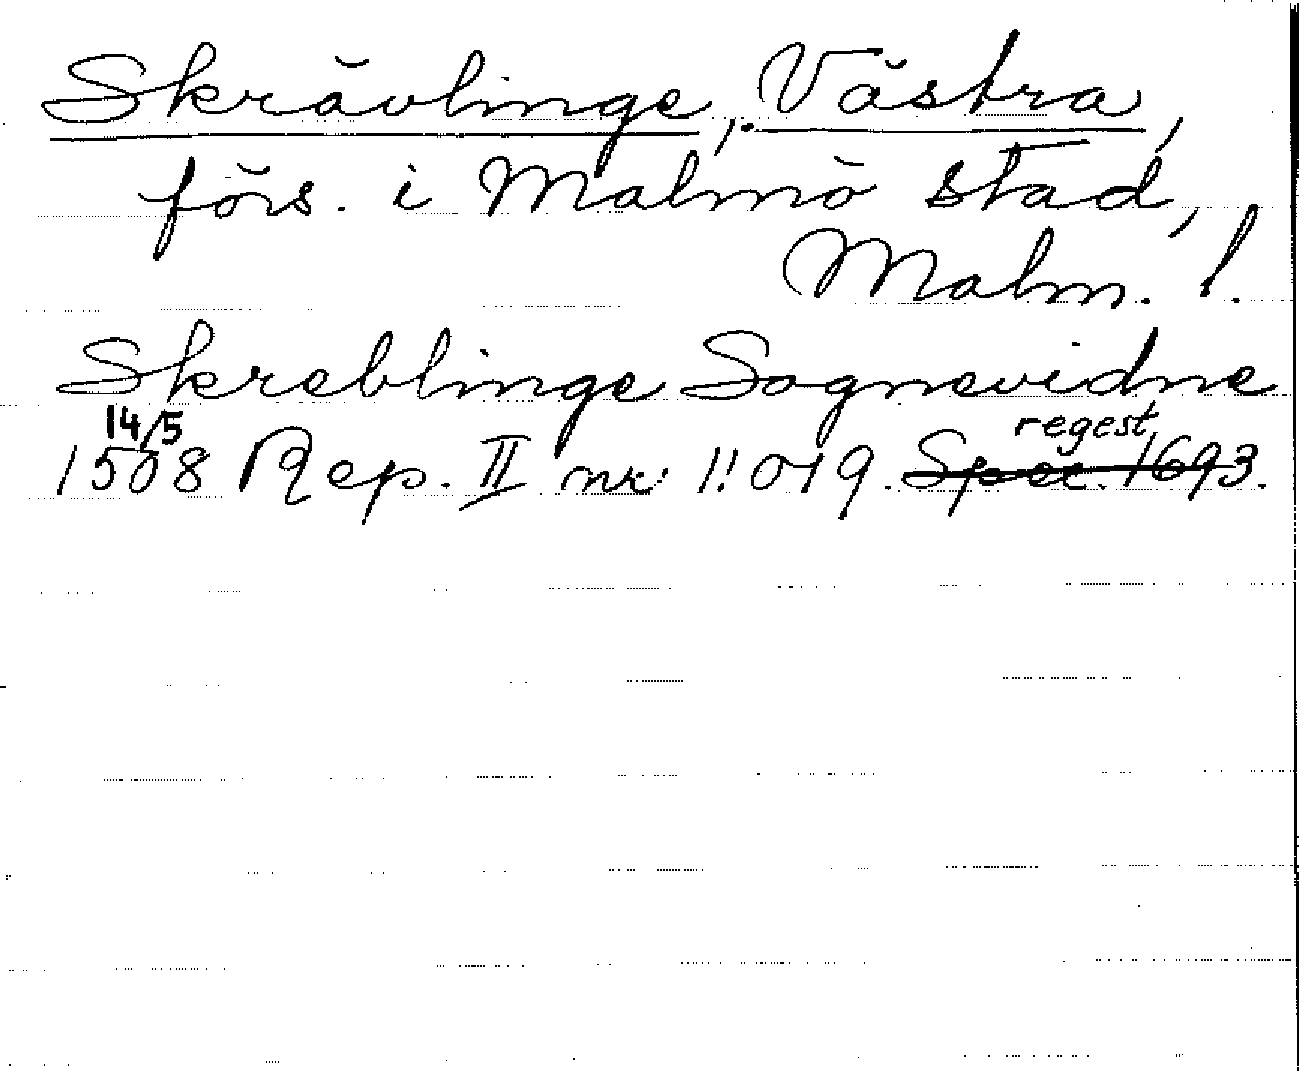 Skrävlinge, Västra,
förs. i Malmö stad,
Malm. l.
Skreblinge Sognevidne
14/5 regest
1508 Rep. II nr 11019. Spec. 1693.